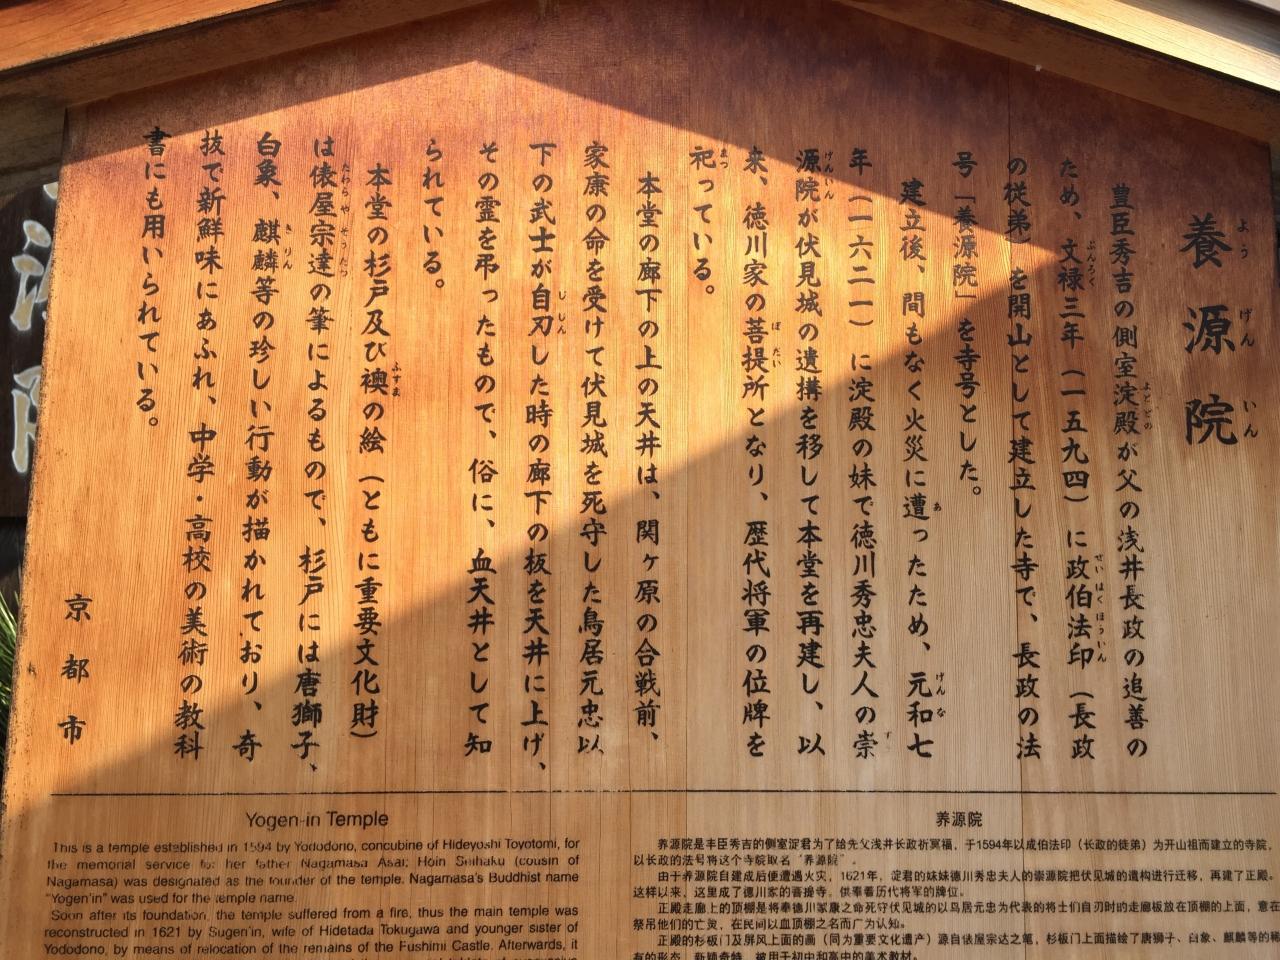 養源院
ようげんいん
豊臣秀吉の側室淀殿が父の浅井長政の追善の
よどどの
ため、文禄三年（一五九四）に政伯法印（長政
ぶんろく
せいはくほういん
の従弟）を開山として建立した寺で、長政の法
号「養源院」を寺号とした。
建立後、間もなく火災に遭ったため、元和七
あ
げんな
年（一六二一）に淀殿の妹で徳川秀忠夫人の崇
す
源院が伏見城の遺構を移して本堂を再建し、以
げんいん
来、徳川家の菩提所となり、歴代将軍の位牌を
ぼだい
祀っている。
まつ
本堂の廊下の上の天井は、関ヶ原の合戦前、
家康の命を受けて伏見城を死守した鳥居元忠以
下の武士が自刃した時の廊下の板を天井に上げ、
じじん
その霊を弔ったもので、俗に、血天井として知
られている。
本堂の杉戸及び襖の絵（ともに重要文化財）
ふすま
は俵屋宗達の筆によるもので、杉戸には唐獅子、
たわらやそうたつ
白象、麒麟等の珍しい行動が描かれており、奇
きりん
抜で新鮮味にあふれ、中学・高校の美術の教科
書にも用いられている。
京都市
Yogen-in Temple
This is a temple established in 1594 by Yododono, concubine of Hideyoshi Toyotomi, for
the memorial service for her father Nagamasa Asai; Hoin Seihaku (cousin of
Nagamasa) was designated as the founder of the temple. Nagamasa's Buddhist name
"Yogen'in" was used for the temple name.
Soon after its foundation, the temple suffered from a fire, thus the main temple was
reconstructed in 1621 by Sugen'in, wife of Hidetada Tokugawa and younger sister of
Yododono, by means of relocation of the remains of the Fushimi Castle. Afterwards, it
养源院
养源院是丰臣秀吉的侧室淀君为了给先父浅井长政祈冥福，于1594年以成伯法印（长政的徒弟）为开山祖而建立的寺院，
以长政的法号将这个寺院取名“养源院”。
由于养源院自建成后便遭遇火灾，1621年，淀君的妹妹德川秀忠夫人的崇源院把伏见城的遗构进行迁移，再建了正殿。
这样以来，这里成了德川家的菩提寺，供奉着历代将军的牌位。
正殿走廊上的顶棚是将奉德川家康之命死守伏见城的以鸟居元忠为代表的将士们自刃时的走廊板放在顶棚的上面，意在
祭吊他们的亡灵，在民间以血顶棚之名而广为认知。
正殿的杉板门及屏风上面的画（同为重要文化遗产）源自俵屋宗达之笔，杉板门上面描绘了唐狮子、白象、麒麟等的稀
有的形态，新颖奇特，被用于初中和高中的美术教材。